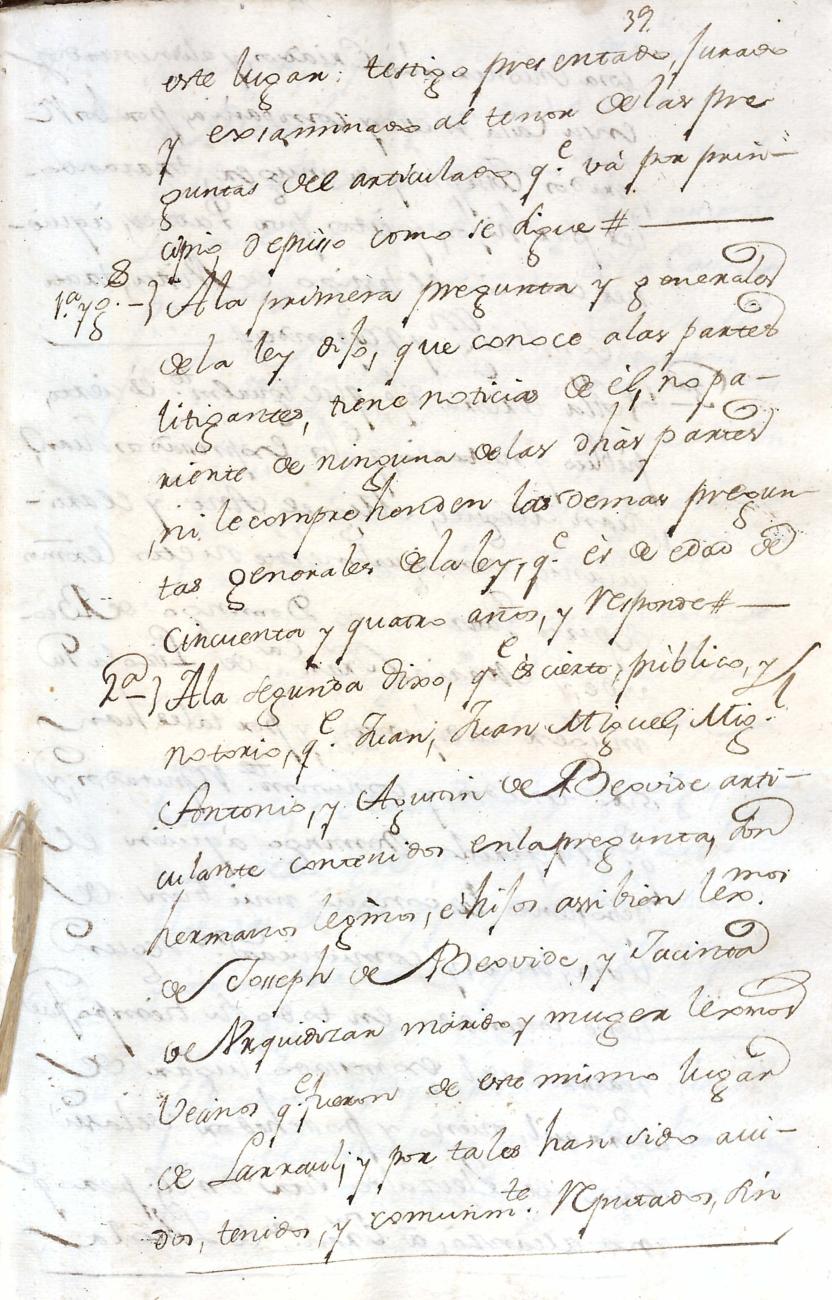 39.
este lugar: testigo presentado, jurado
y examinado al tenor de las pre
guntas del articulado q.e vá por prin-
cipio, depuso como se sigue #
1.ª y g.s -} A la primera pregunta y generales
de la ley dijo, que conoce a las partes
litigantes, tiene noticia de él, no pa-
riente de ninguna de las dhàs partes
ni le comprehenden las demas pregun
tas generales de la ley, q.e és de edad de
Cincuenta y quatro años, y responde #
2ª -} A la segunda dixo, q.e és cierto, público, y
notorio, q.e Juan, Juan Miguel, Mig.l
Antonio, y Agustin de Beovide arti-
culante contenidos en la pregunta, son
hermanos legmos, é hijos assibien lex.mos
de Joseph de Beovide, y Jacinta
de Urquidizar marido y muger lexmos
Vecinos q.e fueron de este mismo lugar
de Larraul, y por tales han sido avi-
dos, tenidos, y comunm.te reputados, sin